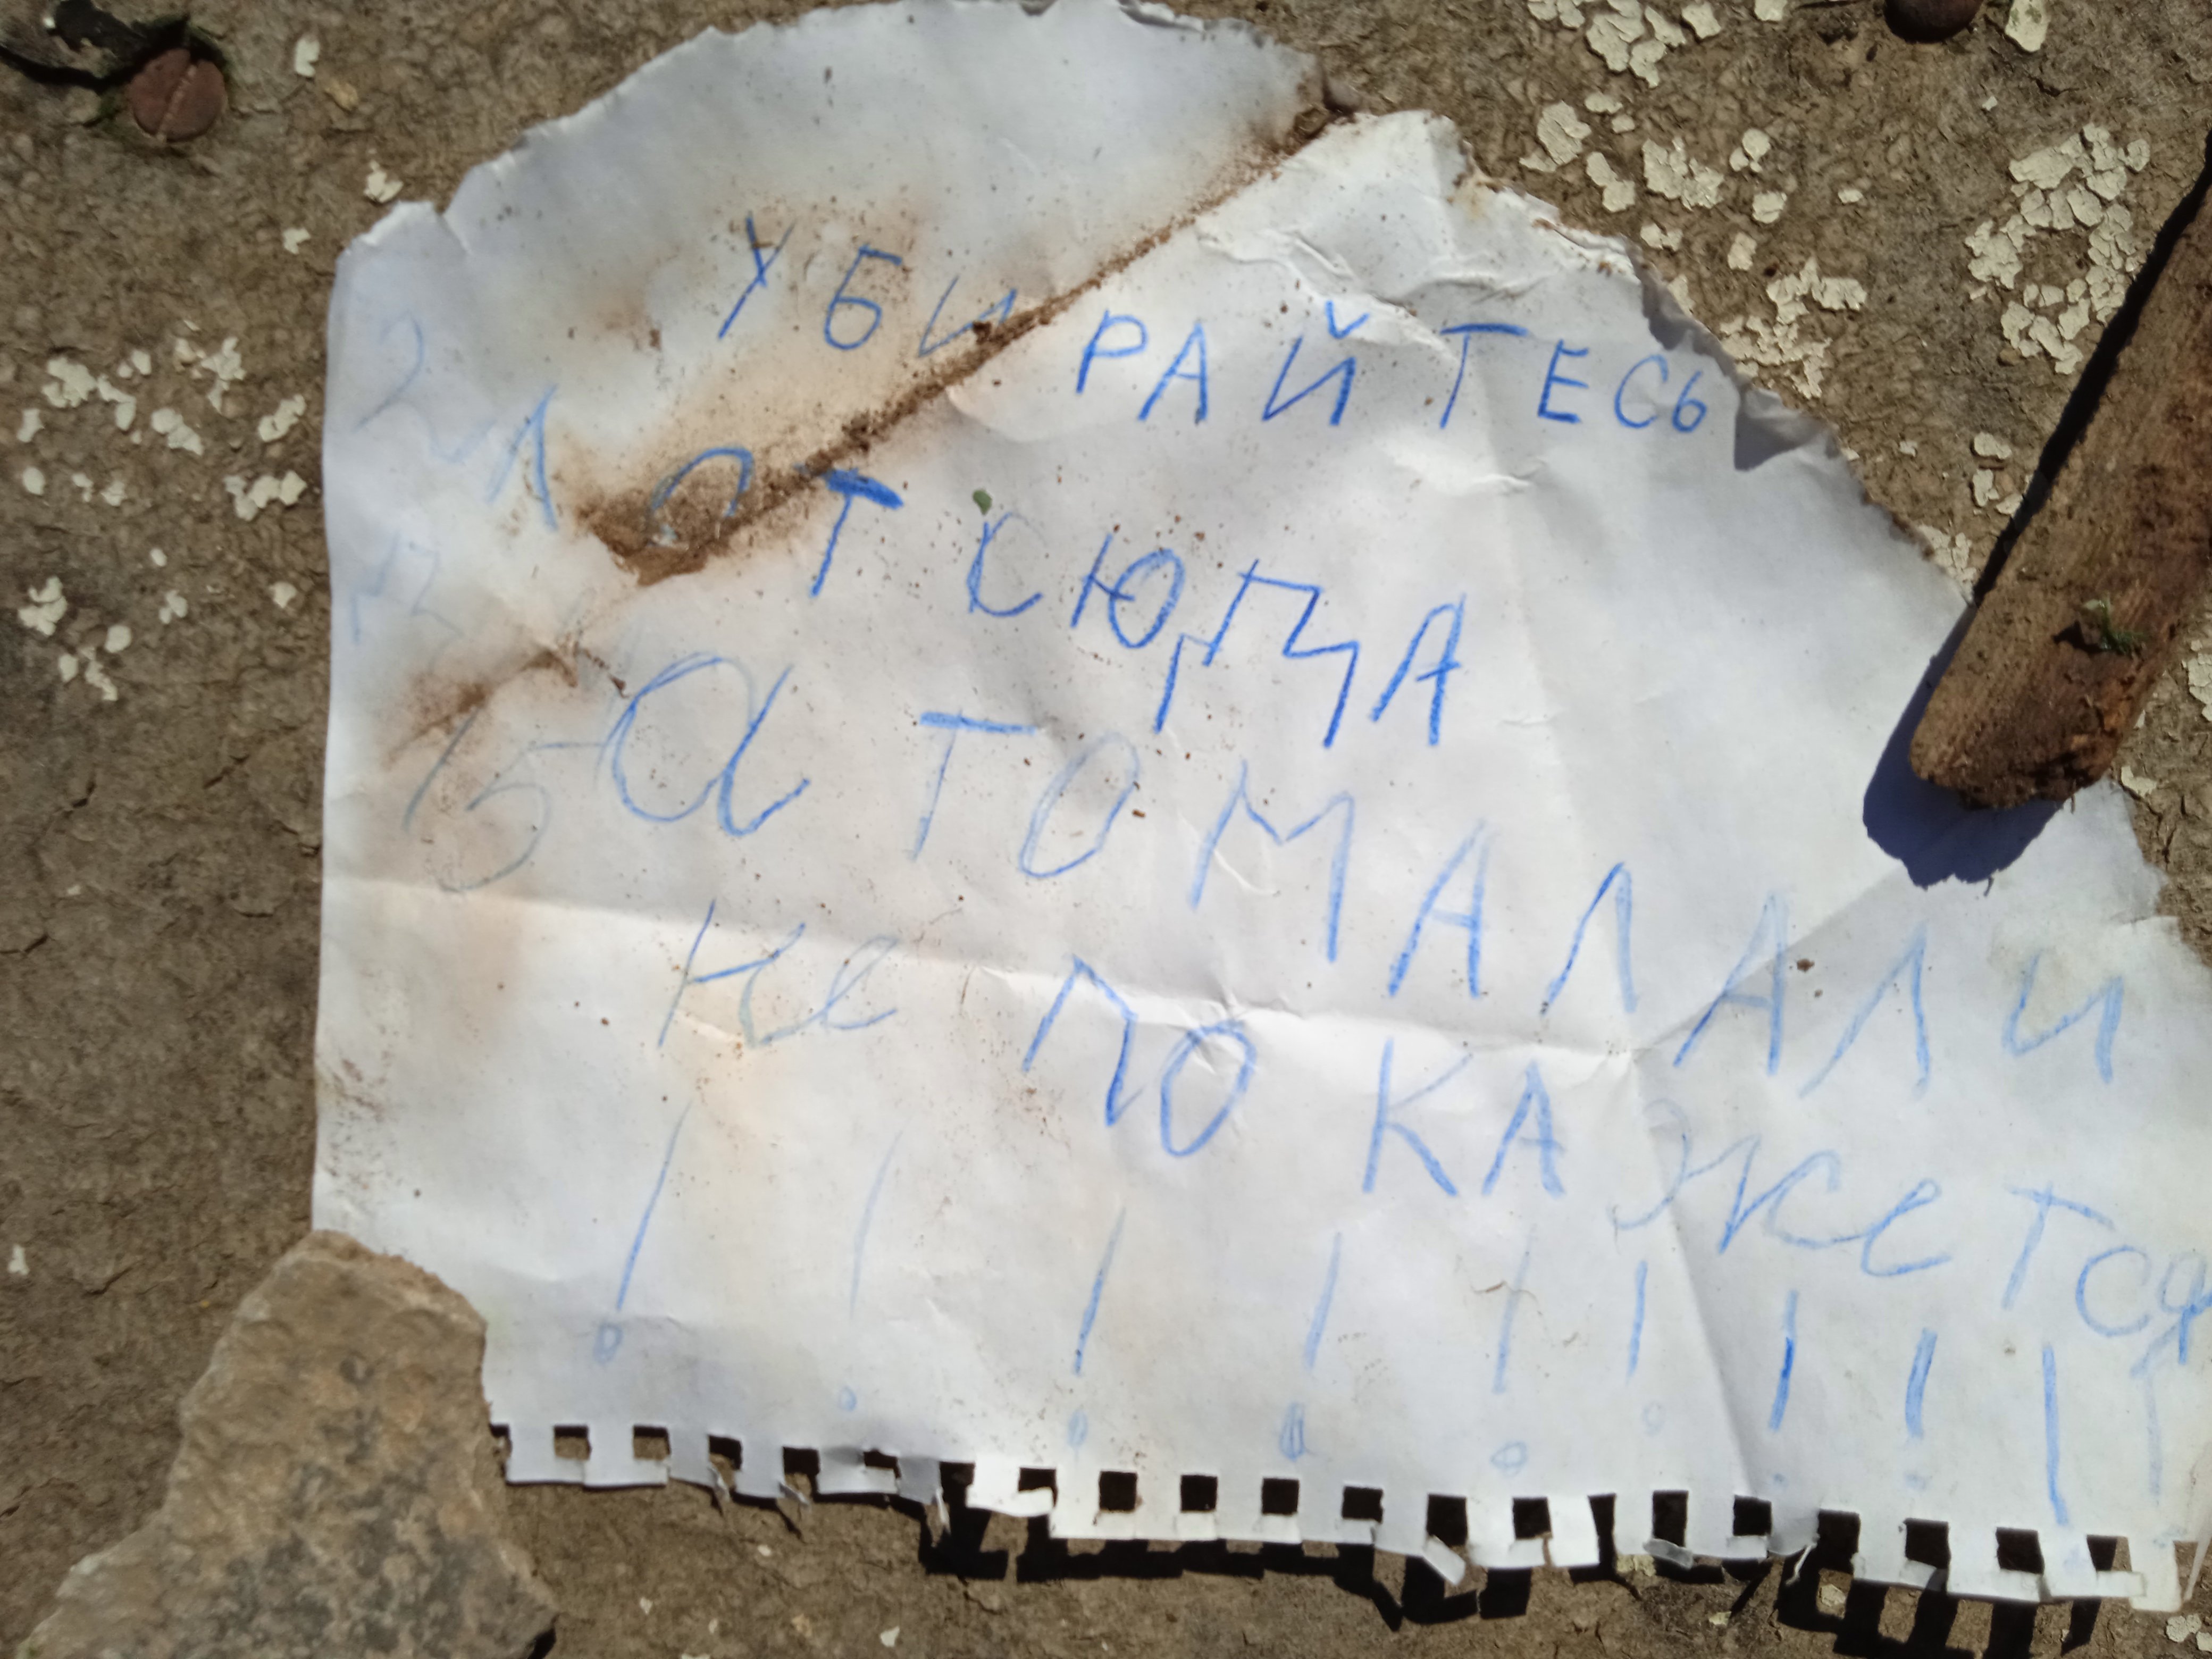 УБИРАЙТЕСЬ
ОТ СЮДА
А ТО МАЛАЛИ
Не ПОКАжетСЯ
! ! ! ! ! ! ! ! ! !